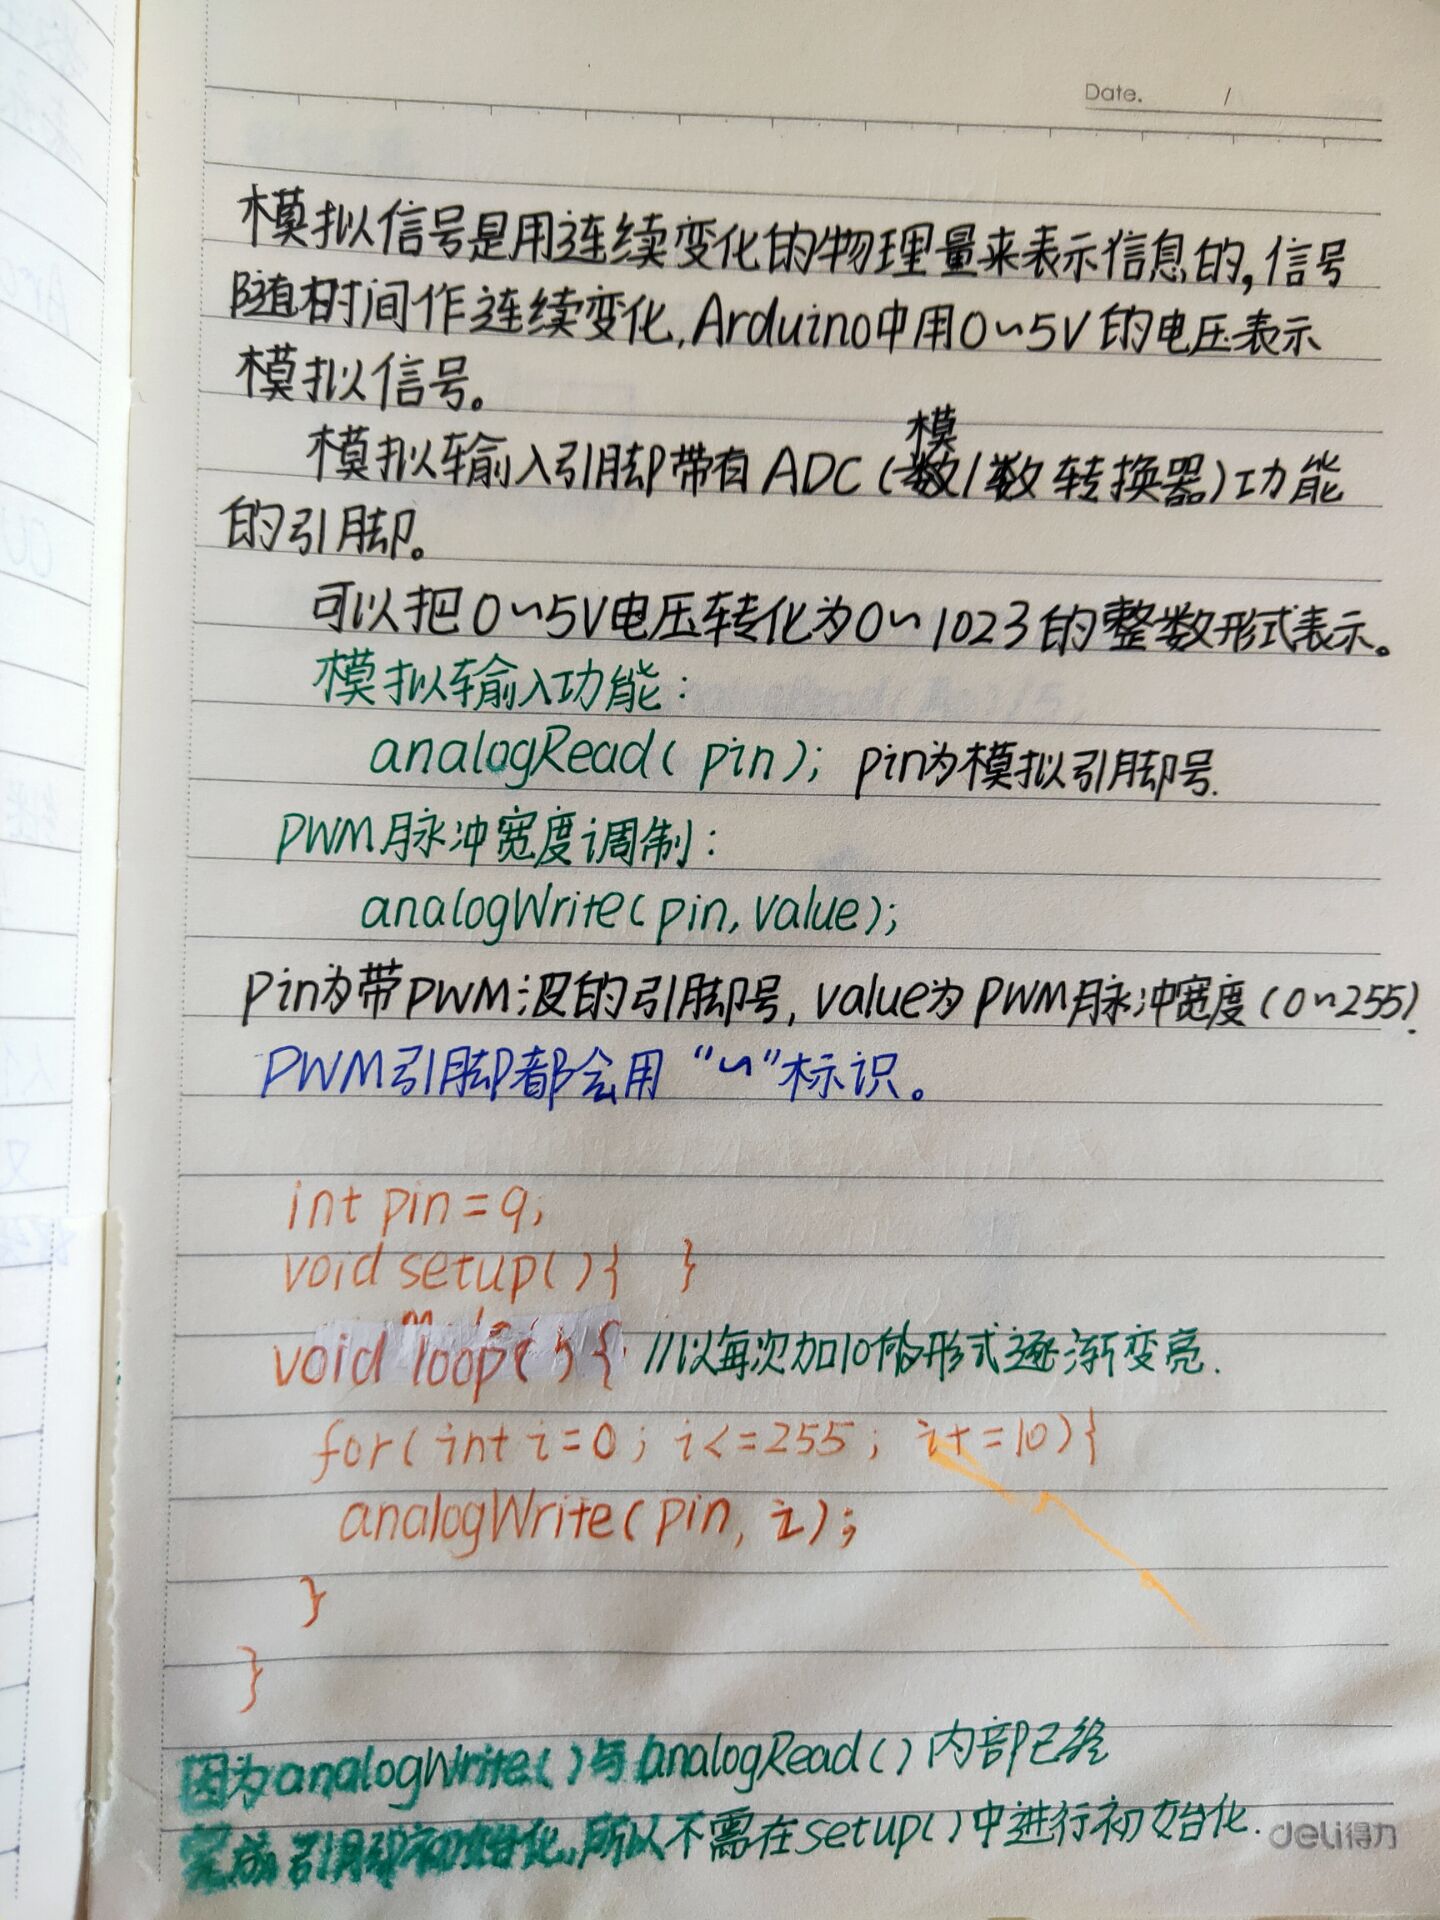 Date. /
模拟信号是用连续变化的物理量来表示信息的,信号
随时间作连续变化,Arduino中用0~5V的电压表示
模拟信号。
模拟输入引脚带有ADC(模/数转换器)功能
的引脚。
可以把0~5V电压转化为0~1023的整数形式表示。
模拟输入功能:
analogRead(pin); pin为模拟引脚号.
PWM脉冲宽度调制:
analogWrite(pin,value);
pin为带PWM波的引脚号,value为PWM脉冲宽度(0~255).
PWM引脚都会用“~”标识。
int pin=9;
void setup(){ }
void loop(){ //以每次加10的形式逐渐变亮.
for(int i=0; i<=255; i+=10){
analogWrite(pin, i);
}
}
因为analogWrite()与analogRead()内部已经
完成引脚初始化,所以不需在setup()中进行初始化.
deli得力